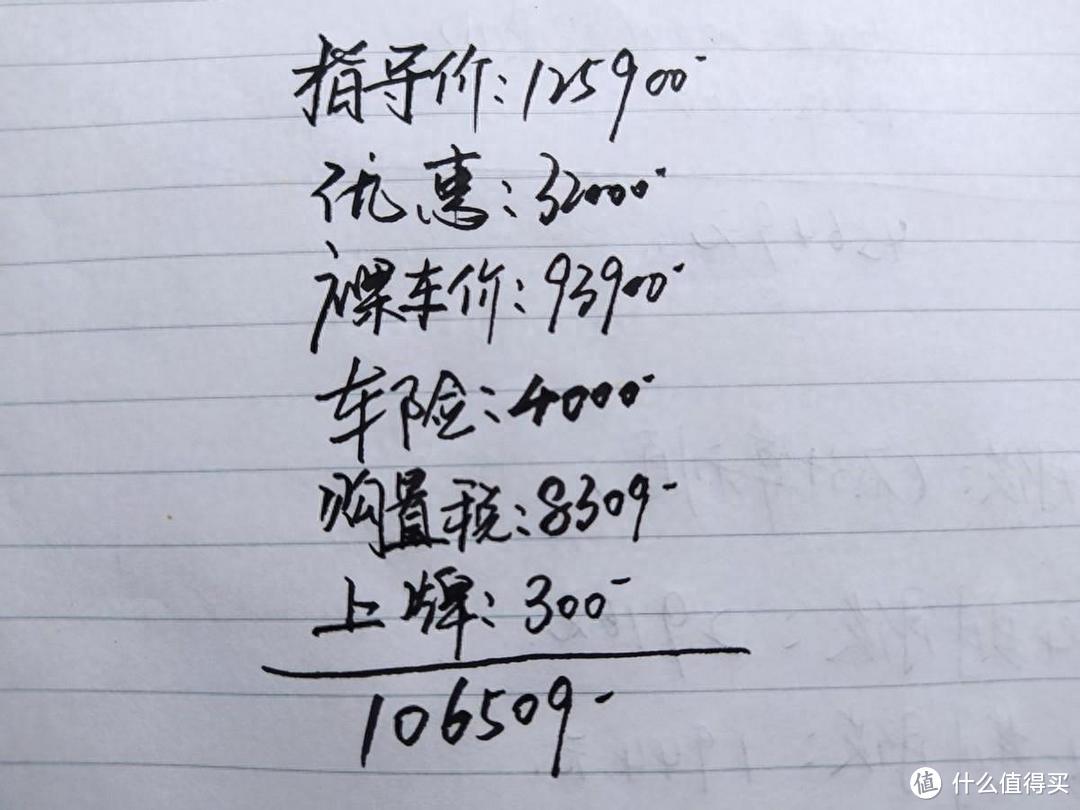 指导价:125900
优惠:32000
裸车价:93900
车险:4000
购置税:8309
上牌:300
106509
值 什么值得买